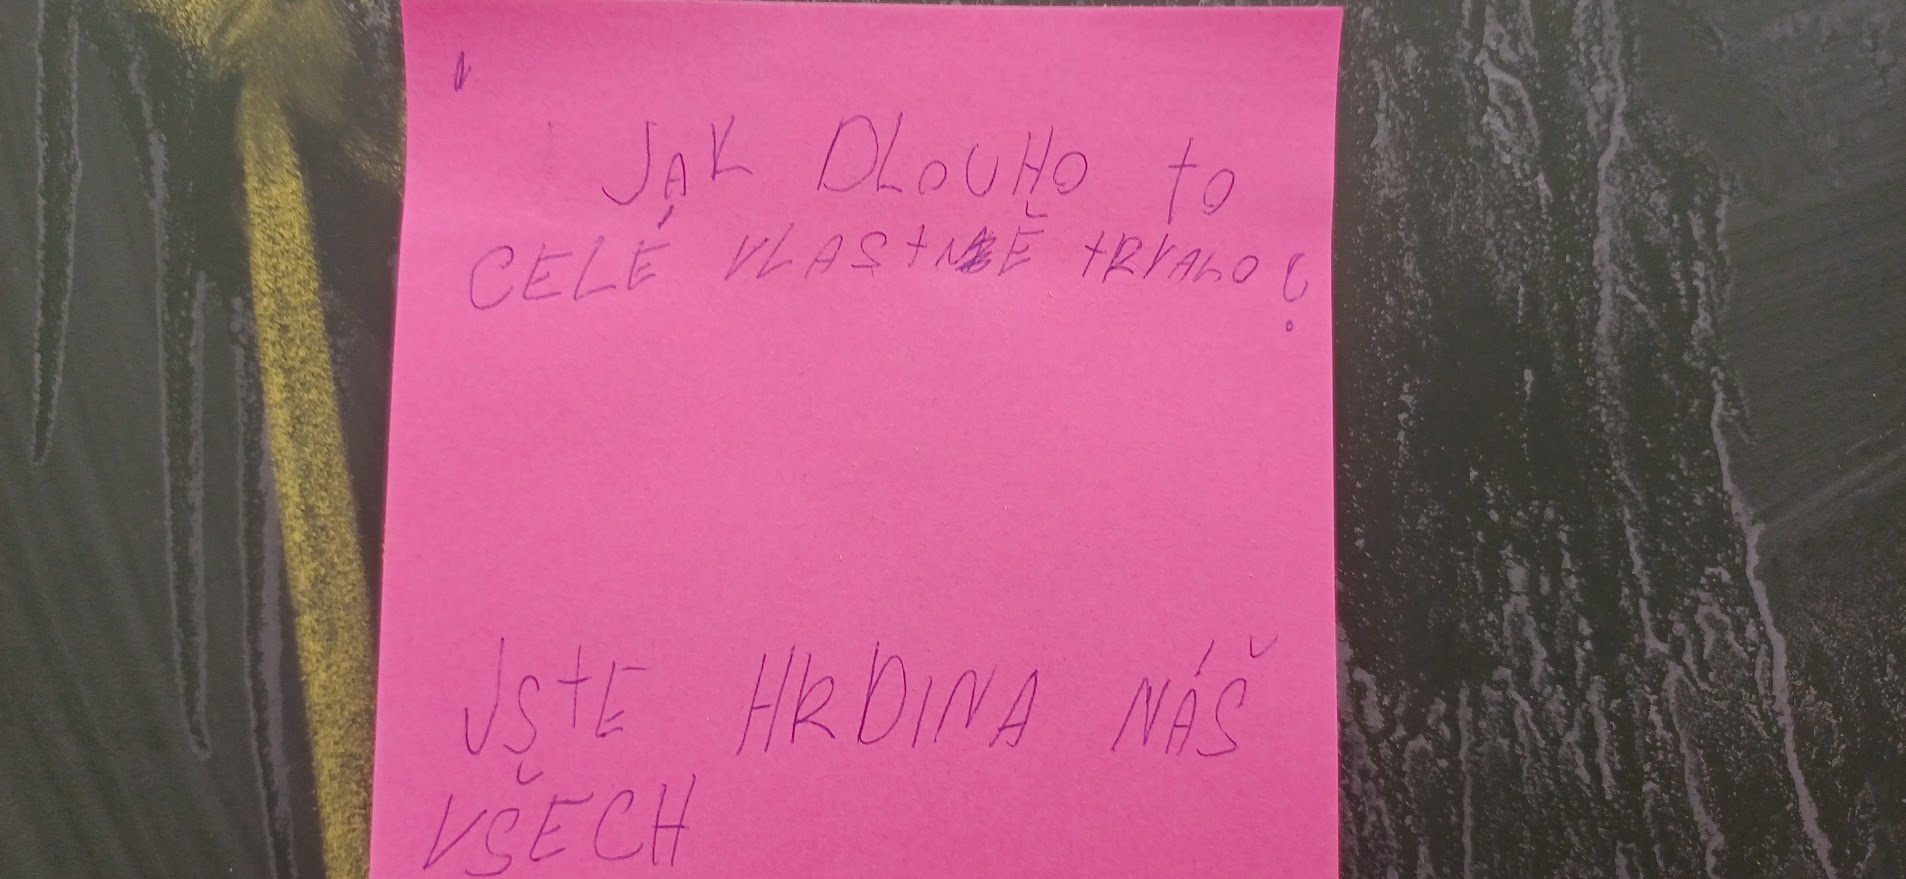 JAK DLOUHO tO
CELÉ VLAStNĚ tRVALO?
JStE HRDINA NÁŠ
VŠECH